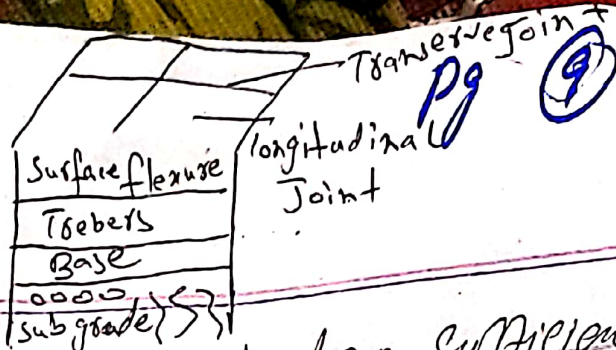 Transerve Joint
Pg 9
longitudinal
Joint
Surface flexure
Trebers
Base
subgrade
sufficien